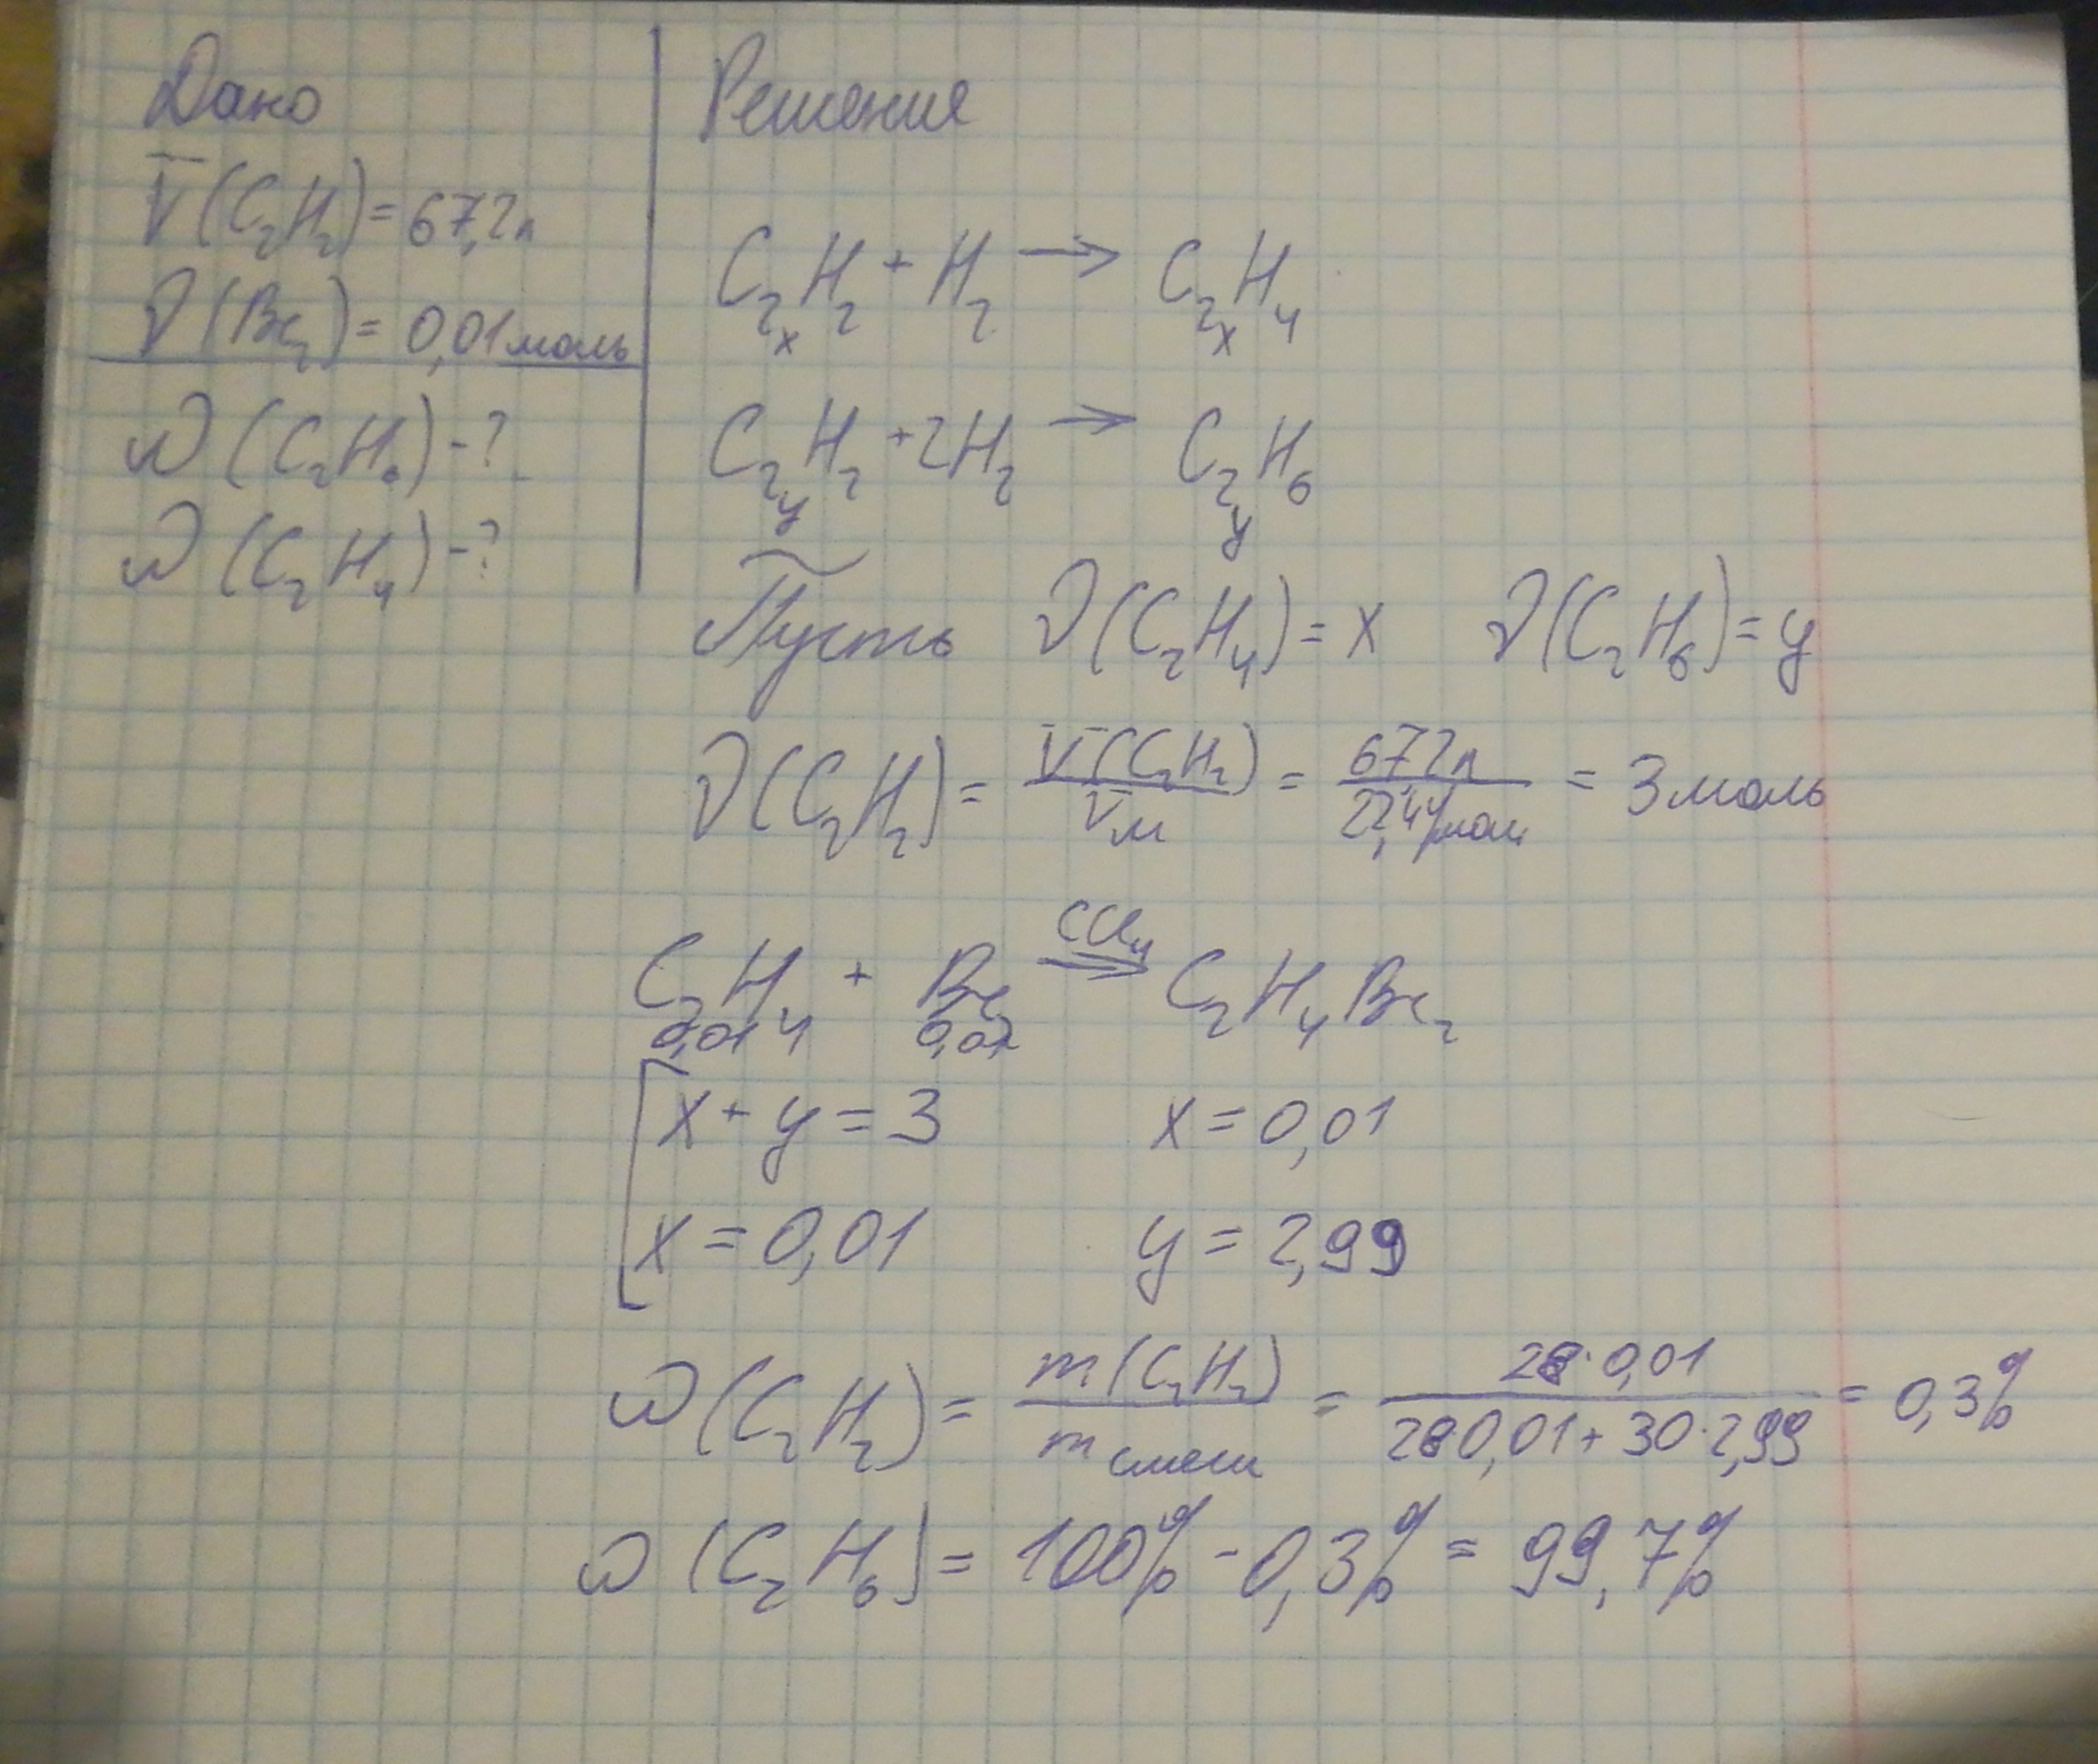 Дано
V(C₂H₂) = 67,2 л
ν(Br₂) = 0,01 моль
ω(C₂H₆) - ?
ω(C₂H₄) - ?
Решение
C₂H₂ + H₂ → C₂H₄
x x
C₂H₂ + 2H₂ → C₂H₆
y y
Пусть ν(C₂H₄) = x ν(C₂H₆) = y
ν(C₂H₂) = V(C₂H₂) / Vм = 67,2 л / 22,4 л/моль = 3 моль
C₂H₄ + Br₂ →(CCl₄) C₂H₄Br₂
0,01 0,01
[ x + y = 3 x = 0,01
x = 0,01 y = 2,99
ω(C₂H₂) = m(C₂H₂) / m смеси = 28·0,01 / 28 0,01 + 30·2,99 = 0,3%
ω(C₂H₆) = 100% - 0,3% = 99,7%